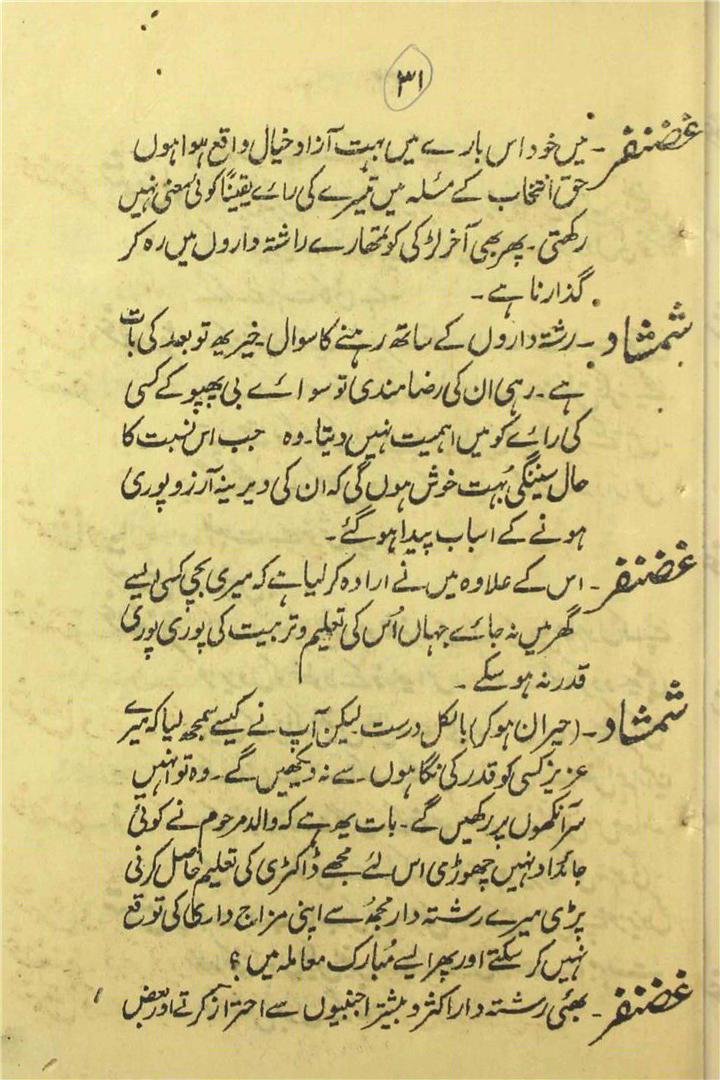 ۳۱
غضنفر۔ میں خود اس بارے میں بہت آزاد خیال واقع ہوا ہوں
حق انتخاب کے مسئلہ میں تیسرے کی رائے یقیناً کوئی معنی نہیں
رکھتی۔ پھر بھی آخر لڑکی کو تمھارے راشتہ داروں میں رہ کر
گذارنا ہے۔
شمشاد۔ رشتہ داروں کے ساتھ رہنے کا سوال خیر یہ تو بعد کی بات
ہے۔ رہی ان کی رضامندی تو سوائے بی پھپو کے کسی
کی رائے کو میں اہمیت نہیں دیتا۔ وہ جب اس نسبت کا
حال سنینگی بُہت خوش ہوں گی کہ ان کی دیرینہ آرزو پوری
ہونے کے اسباب پیدا ہوگئے۔
غضنفر۔ اس کے علاوہ میں نے ارادہ کر لیا ہے کہ میری بچی کسی ایسے
گھر میں نہ جائے جہاں اُس کی تعلیم و تربیت کی پوری پوری
قدر نہ ہو سکے۔
شمشاد۔ (حیران ہوکر) بالکل درست لیکن آپ نے کیسے سمجھ لیا کہ میرے
عزیز کسی کو قدر کی نگاہوں سے نہ دیکھیں گے۔ وہ تو انہیں
سر آنکھوں پر رکھیں گے۔ بات یہ ہے کہ والد مرحوم نے کوئی
جائداد نہیں چھوڑی اس لئے مجھے ڈاکٹری کی تعلیم حاصل کرنی
پڑی میرے رشتہ دار مجھ سے اپنی مزاج داری کی توقع
نہیں کر سکتے اور پھر ایسے مُبارک معاملہ میں ؟
غضنفر۔ بھئی رشتہ دار اکثر و بیشتر اجنبیوں سے احتراز کرتے اور بعض